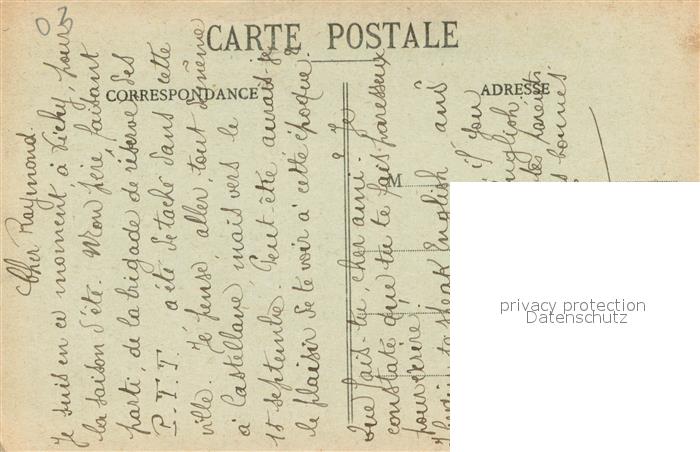 03
CARTE POSTALE
CORRESPONDANCE
ADRESSE
M
Cher Raymond.
Je suis en ce moment à Vichy, pour
la saison d'été. Mon père faisant
parti, de la brigade de réserve des
P.T.T. a été détaché dans cette
ville. Je pense aller, tout de même
à Castellane mais vers le
15 septembre. Peut-être aurais-je
le plaisir de te voir à cette époque.
Que fais-tu, cher ami. Je
constate que tu te fais paresseux
pour écrire.
to speak English and
if you
English.
tes parents
bonnes
privacy protection
Datenschutz